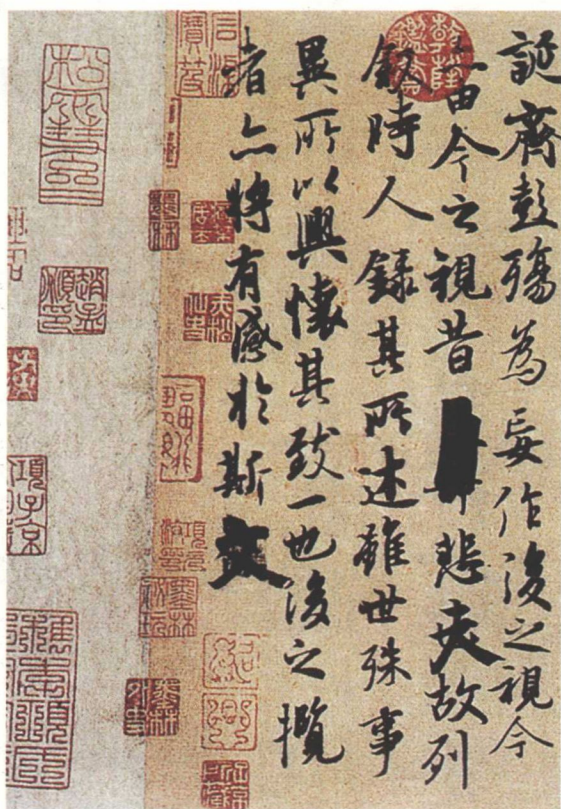 誕齊彭殤為妄作後之視今
亦由今之視昔悲夫故列
敘時人錄其所述雖世殊事
異所以興懷其致一也後之攬
者亦將有感於斯文
紹興
趙孟頫印